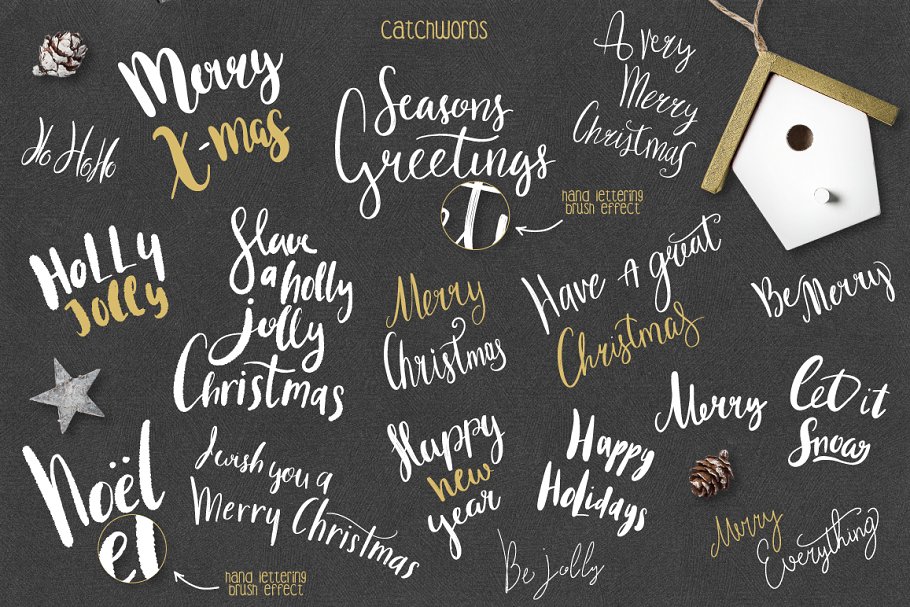 CATCHWORDS
Merry
X-mas
Seasons
Greetings
A very
Merry
Christmas
Ho HoHo
HAND LETTERING
BRUSH EFFECT
Holly
Jolly
Have
a holly
jolly
Christmas
Merry
Christmas
Have A great
Christmas
Be Merry
Noël
el
HAND LETTERING
BRUSH EFFECT
I wish you a
Merry Christmas
Happy
new
year
Happy
Holidays
Merry
Let it
Snow
Be jolly
Merry
Everything